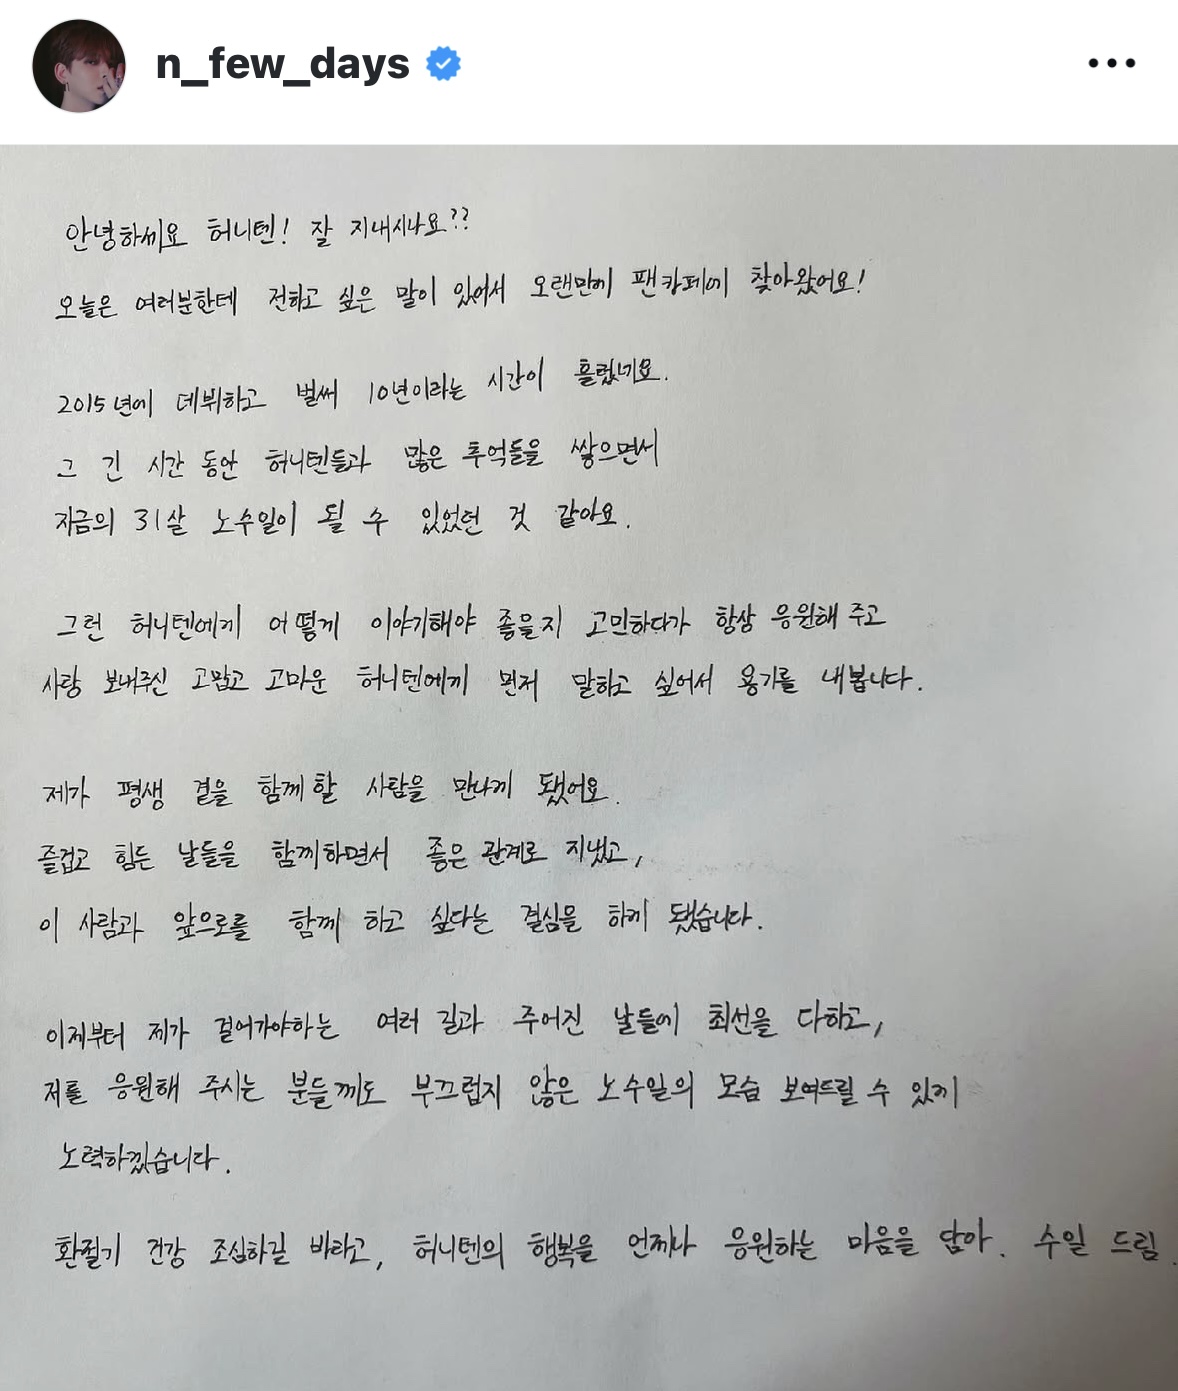 n_few_days
안녕하세요 허니텐! 잘 지내시나요??
오늘은 여러분한테 전하고 싶은 말이 있어서 오랜만에 팬카페에 찾아왔어요!
2015년에 데뷔하고 벌써 10년이라는 시간이 흘렀네요.
그 긴 시간 동안 허니텐들과 많은 추억들을 쌓으면서
지금의 31살 노수일이 될 수 있었던 것 같아요.
그런 허니텐에게 어떻게 이야기해야 좋을지 고민하다가 항상 응원해 주고
사랑 보내주신 고맙고 고마운 허니텐에게 먼저 말하고 싶어서 용기를 내봅니다.
제가 평생 곁을 함께 할 사람을 만나게 됐어요.
즐겁고 힘든 날들을 함께하면서 좋은 관계로 지냈고,
이 사람과 앞으로를 함께 하고 싶다는 결심을 하게 됐습니다.
이제부터 제가 걸어가야하는 여러 길과 주어진 날들에 최선을 다하고,
저를 응원해 주시는 분들께도 부끄럽지 않은 노수일의 모습 보여드릴 수 있게
노력하겠습니다.
환절기 건강 조심하길 바라고, 허니텐의 행복을 언제나 응원하는 마음을 담아. 수일 드림.